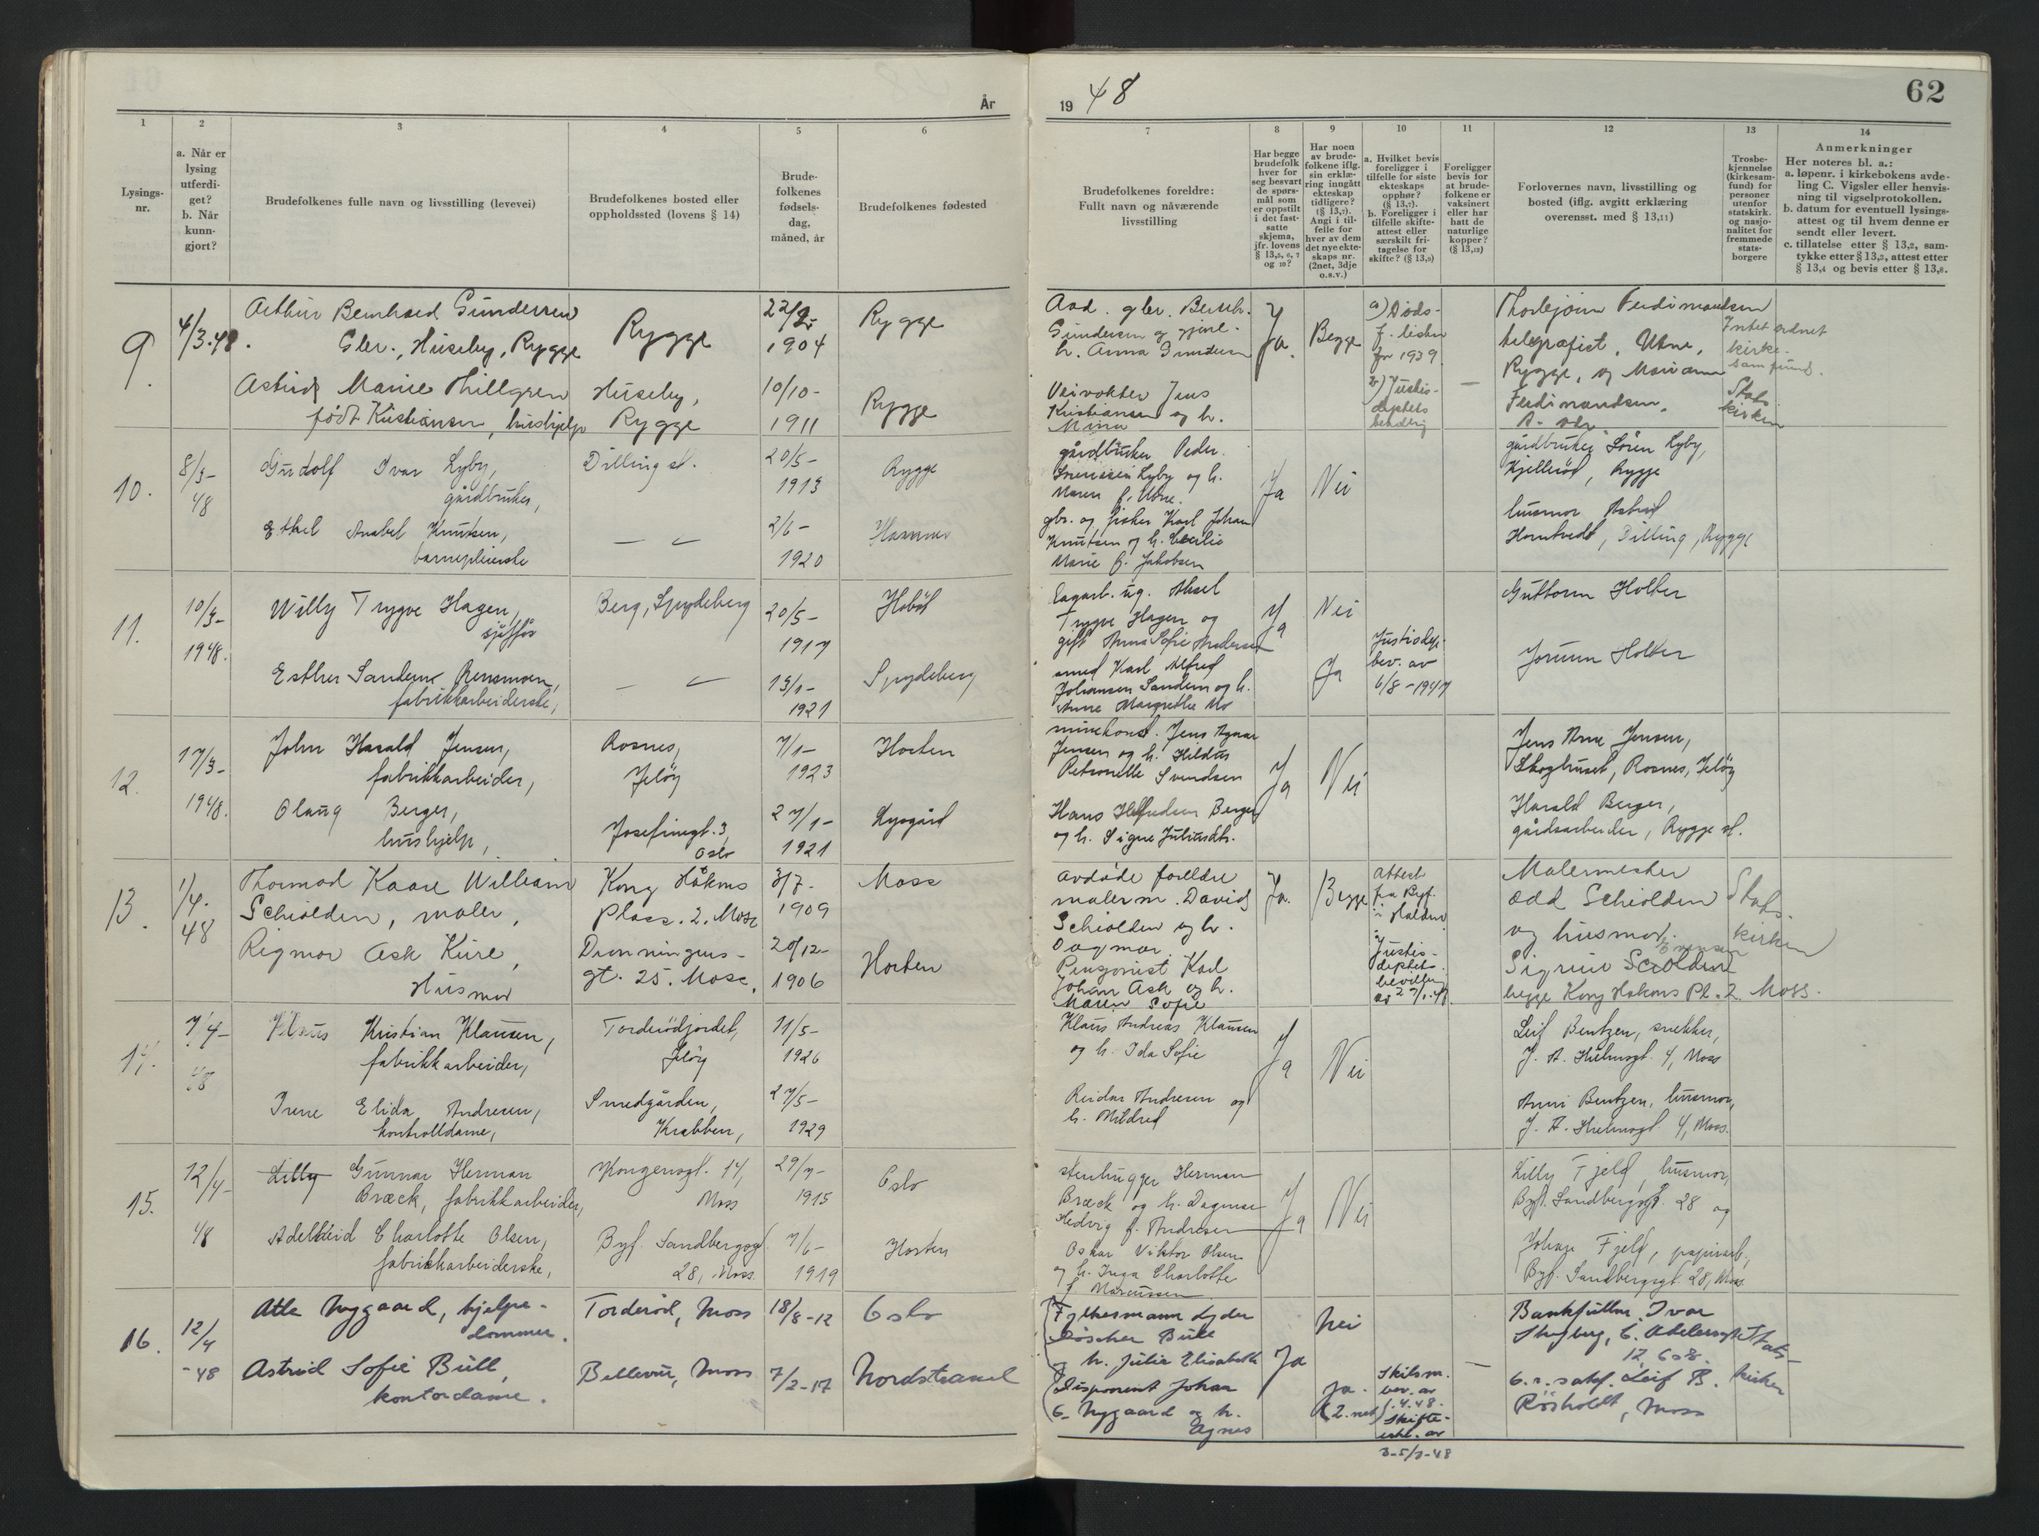 År
19 48
62
1
2
3
4
5
6
Lysings-
nr.
a. Når er
lysing
utferdi-
get?
b. Når
kunn-
gjort?
Brudefolkenes fulle navn og livsstilling (levevei)
Brudefolkenes bosted eller
oppholdssted (lovens § 14)
Brude-
folkenes
fødsels-
dag,
måned, år
Brudefolkenes fødested
7
8
9
10
11
12
13
14
Brudefolkenes foreldre:
Fullt navn og nåværende
livsstilling
Har begge
brudefolk
hver for
seg besvart
de spørs-
mål som
er oppstilt
i det fast-
satte
skjema,
jfr. lovens
§ 13,5, 6, 7
og 10?
Har noen
av brude-
folkene iflg.
sin erklæ-
ring inngått
ekteskap
tidligere?
(§ 13,7).
Angi i til-
felle for
hver av dem
det nye ekte-
skaps nr.
(2net, 3dje
o.s.v.)
a. Hvilket bevis
foreligger i
tilfelle for siste
ekteskaps
opphør?
(§ 13,7).
b. Foreligger i
tilfelle skifte-
attest eller
særskilt fri-
tagelse for
skifte? (§ 13,9)
Foreligger
bevis for
at brude-
folkene er
vaksinert
eller har
hatt de
naturlige
kopper?
(§ 13,12)
Forlovernes navn, livsstilling og
bosted (iflg. avgitt erklæring
overensst. med § 13,11)
Trosbe-
kjennelse
(kirkesam-
fund) for
personer
utenfor
statskirk.
og nasjo-
nalitet for
fremmede
stats-
borgere
Anmerkninger
Her noteres bl. a.:
a. løpenr. i kirkebokens avde-
ling C. Vigsler eller henvis-
ning til vigselprotokollen.
b. datum for eventuell lysings-
attest og til hvem denne er
sendt eller levert.
c. tillatelse etter § 13,2, sam-
tykke etter § 13,3, attest etter
§ 13,4 og bevis etter § 13,8.
9.
4/3.48.
Arthur Bernhard Gundersen
Gbr., Huseby, Rygge
Rygge
22/2-
1904
Rygge
Astrid Marie Thillgren
født Kristiansen, hushjelp
Huseby,
Rygge
10/10-
1911
Rygge
Avd. gbr. Bernh.
Gundersen og
h. Anna Gundersen
Veivokter Jens
Kristiansen og h.
Mina
Ja.
Begge
a) Døds-
f.
før 1939
b) Justis-
deptets
—
Thorbjørn Ferdinandsen
telegrafist, Ubne,
Rygge, og Mariann
Ferdinandsen.
Intet ordnet
kirke-
samfund.
Stats
kirken
10.
8/3-
48
Gudolf Ivar Lyby,
gårdbruker,
Dilling st.
20/5-
1913
Rygge
Ethel Anabel Knutsen,
barnepleierske
— 〃
2/6-
1920
gårdbruker Peder
Sørenssen Lyby og h.
Maren f. Ubne.
gbr. og fisker Karl Johan
Knutsen og h.
Marie f. Jakobsen
Ja
Nei
gårdbruker Søren Lyby,
Kjellerød, Rygge
husmor Astrid
Horntvedt, Dilling, Rygge
11.
10/3-
1948.
Willy Trygve Hagen,
sjåfør
Berg, Spydeberg
20/5-
1917
Hobøl
Esther Sandem Rensmoen,
fabrikkarbeiderske,
— 〃
13/1-
1921
Spydeberg
Eagarb. ug. Aksel
Trygve Hagen og
gift Anna Sofie Andersen
smed Karl Alfred
Johansen Sandem og h.
Anne Margrethe Mo
Ja
Nei
Ja
Justisdep.
bev. av
6/8-1947
Guttorm Holter
Jorunn Holter
12.
17/3-
1948.
John Harald Jensen,
fabrikkarbeider,
Rosnes,
Jeløy
7/1-
1923
Horten
Olaug Berger,
hushjelp,
Josefinegt. 3,
Oslo
27/1-
1921
Rygård
minekonst. Jens Agnar
Jensen og h. Hildus
Petronelle Svendsen
Hans Berger
og h. Signe Juliusdt.
Ja
Nei
Jens Arne Jensen,
Skoghuset, Rosnes, Jeløy
Harald Berger,
gårdsarbeider, Rygge st.
13.
1/4.
48
Thormod Kaare William
Schiolden, maler,
Kong Håkons
Plass. 2. Moss
3/7-
1909
Moss
Rigmor Ask Kure,
Husmor
Dronningens-
gt. 25. Moss.
20/12-
1906
Horten
Avdøde foreldre
malerm. David
Schiolden og h.
Dagmar
Pensjonist Karl
Johan Ask og h.
Maren Sofie
Ja.
Begge
Attest
fra Byf.
i Halden
Justis-
deptets
bevilling
Malermester
Odd Schiolden
og husmor
Sigrun Sciolden
begge Kong Hakons Pl. 2. Moss.
Stats.
kirken
14.
7/4-
48
Klaus Kristian Klausen,
fabrikkarbeider,
Torderødjordet,
Jeløy
11/5-
1926
Irene Elida Andresen,
kontrolldame,
Smedgården,
Krabben,
27/5-
1929
Klaus Andreas Klausen
og h. Ida Sofie
Reidar Andresen og
h. Mildred
Ja
Nei
Leif Bentzen, snekker,
J. A. Hielmsgt. 4, Moss
Anni Bentzen, husmor,
J. A. Hielmsgt. 4, Moss.
15.
12/4-
48
Lilly Gunnar Herman
Bræck, fabrikkarbeider,
Kongensgt. 14,
Moss
29/7-
1915
Oslo
Adelheid Charlotte Olsen,
fabrikkarbeiderske,
Byf. Sandbergsgt.
28, Moss.
7/6-
1919
Horten
stenhugger Herman
Bræck og h. Dagmar
Hedvig f. Andresen
Oskar Viktor Olsen
og h. Inga Charlotte
f. Marcussen.
Ja
Nei
Lilly Fjeld, husmor,
Byf. Sandbergsgt. 28 og
Johan Fjeld, papirarb.,
Byf. Sandbergsgt. 28, Moss.
16.
12/4
-48
Atle Nygaard, hjelpe-
dommer.
Torderød, Moss
18/8-12
Oslo
Astrid Sofie Bull,
kontordame.
Bellevue, Moss
7/2-17
Nordstrand
Fylkesmann Lyder
Bull
og h. Julie Elisabeth
Disponent Johan
G. Nygaard og h.
Agnes
Ja
Nei
Ja.
(2. net)
Skilsm.
bev. av
.4.48.
Skifte-
erkl. av
3-5/3-48
—
Bankfullm. Ivar
Skyberg, C. Adelersgt.
12 Oslo.
o.r.sakf. Leif B.
Røsholdt, Moss
Stats-
kirken